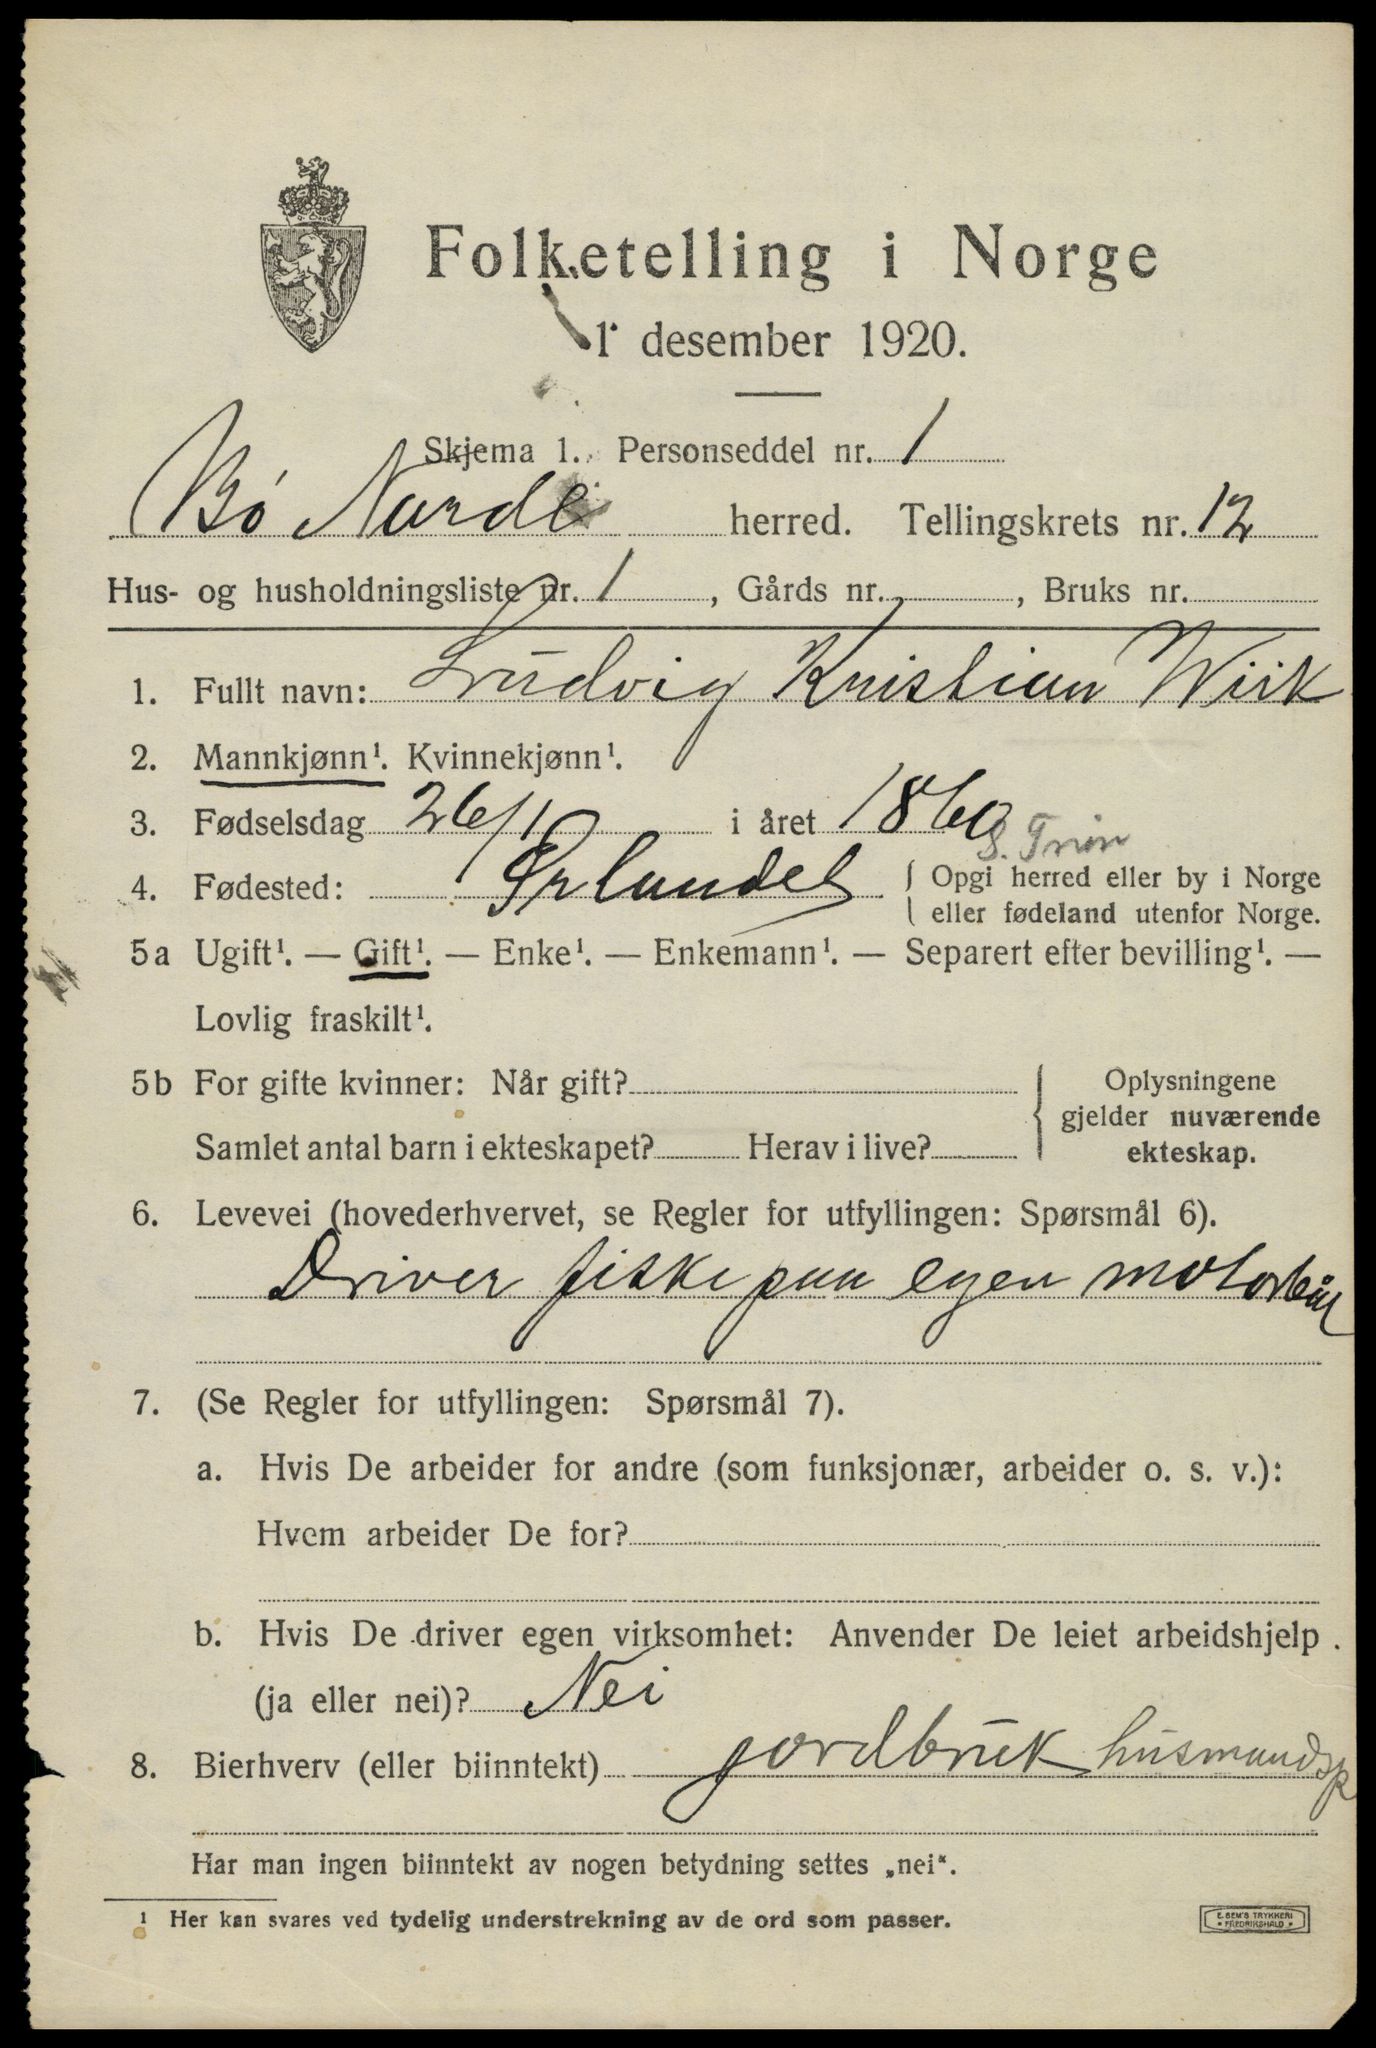 Folketelling i Norge
1. desember 1920.
Skjema 1. Personseddel nr. 1
Bø Nordl herred. Tellingskrets nr. 12
Hus- og husholdningsliste nr. 1, Gårds nr. , Bruks nr.
1. Fullt navn: Ludvig Kristian Wiik
2. Mannkjønn¹. Kvinnekjønn¹.
3. Fødselsdag 26/1 i året 1860
S. Trøn
4. Fødested: Ørlandet { Opgi herred eller by i Norge
eller fødeland utenfor Norge.
5a Ugift¹. — Gift¹. — Enke¹. — Enkemann¹. — Separert efter bevilling¹. —
Lovlig fraskilt¹.
5b For gifte kvinner: Når gift? { Oplysningene
gjelder nuværende
Samlet antal barn i ekteskapet? Herav i live? ekteskap.
6. Levevei (hovederhvervet, se Regler for utfyllingen: Spørsmål 6).
Driver fiske paa egen motorbåt
7. (Se Regler for utfyllingen: Spørsmål 7).
a. Hvis De arbeider for andre (som funksjonær, arbeider o. s. v.):
Hvem arbeider De for?
b. Hvis De driver egen virksomhet: Anvender De leiet arbeidshjelp
(ja eller nei)? Nei
8. Bierhverv (eller biinntekt) jordbruk husmandspl
Har man ingen biinntekt av nogen betydning settes „nei“.
¹ Her kan svares ved tydelig understrekning av de ord som passer.
E. SEM'S TRYKKERI
FREDRIKSHALD